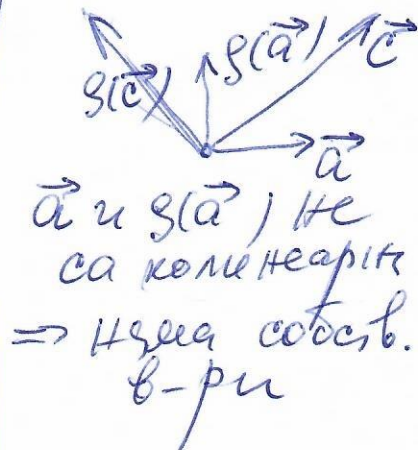 ρ(c⃗) ρ(a⃗) c⃗
a⃗
a⃗ и ρ(a⃗) не
са колинеарни
⇒ няма собств.
в-ри